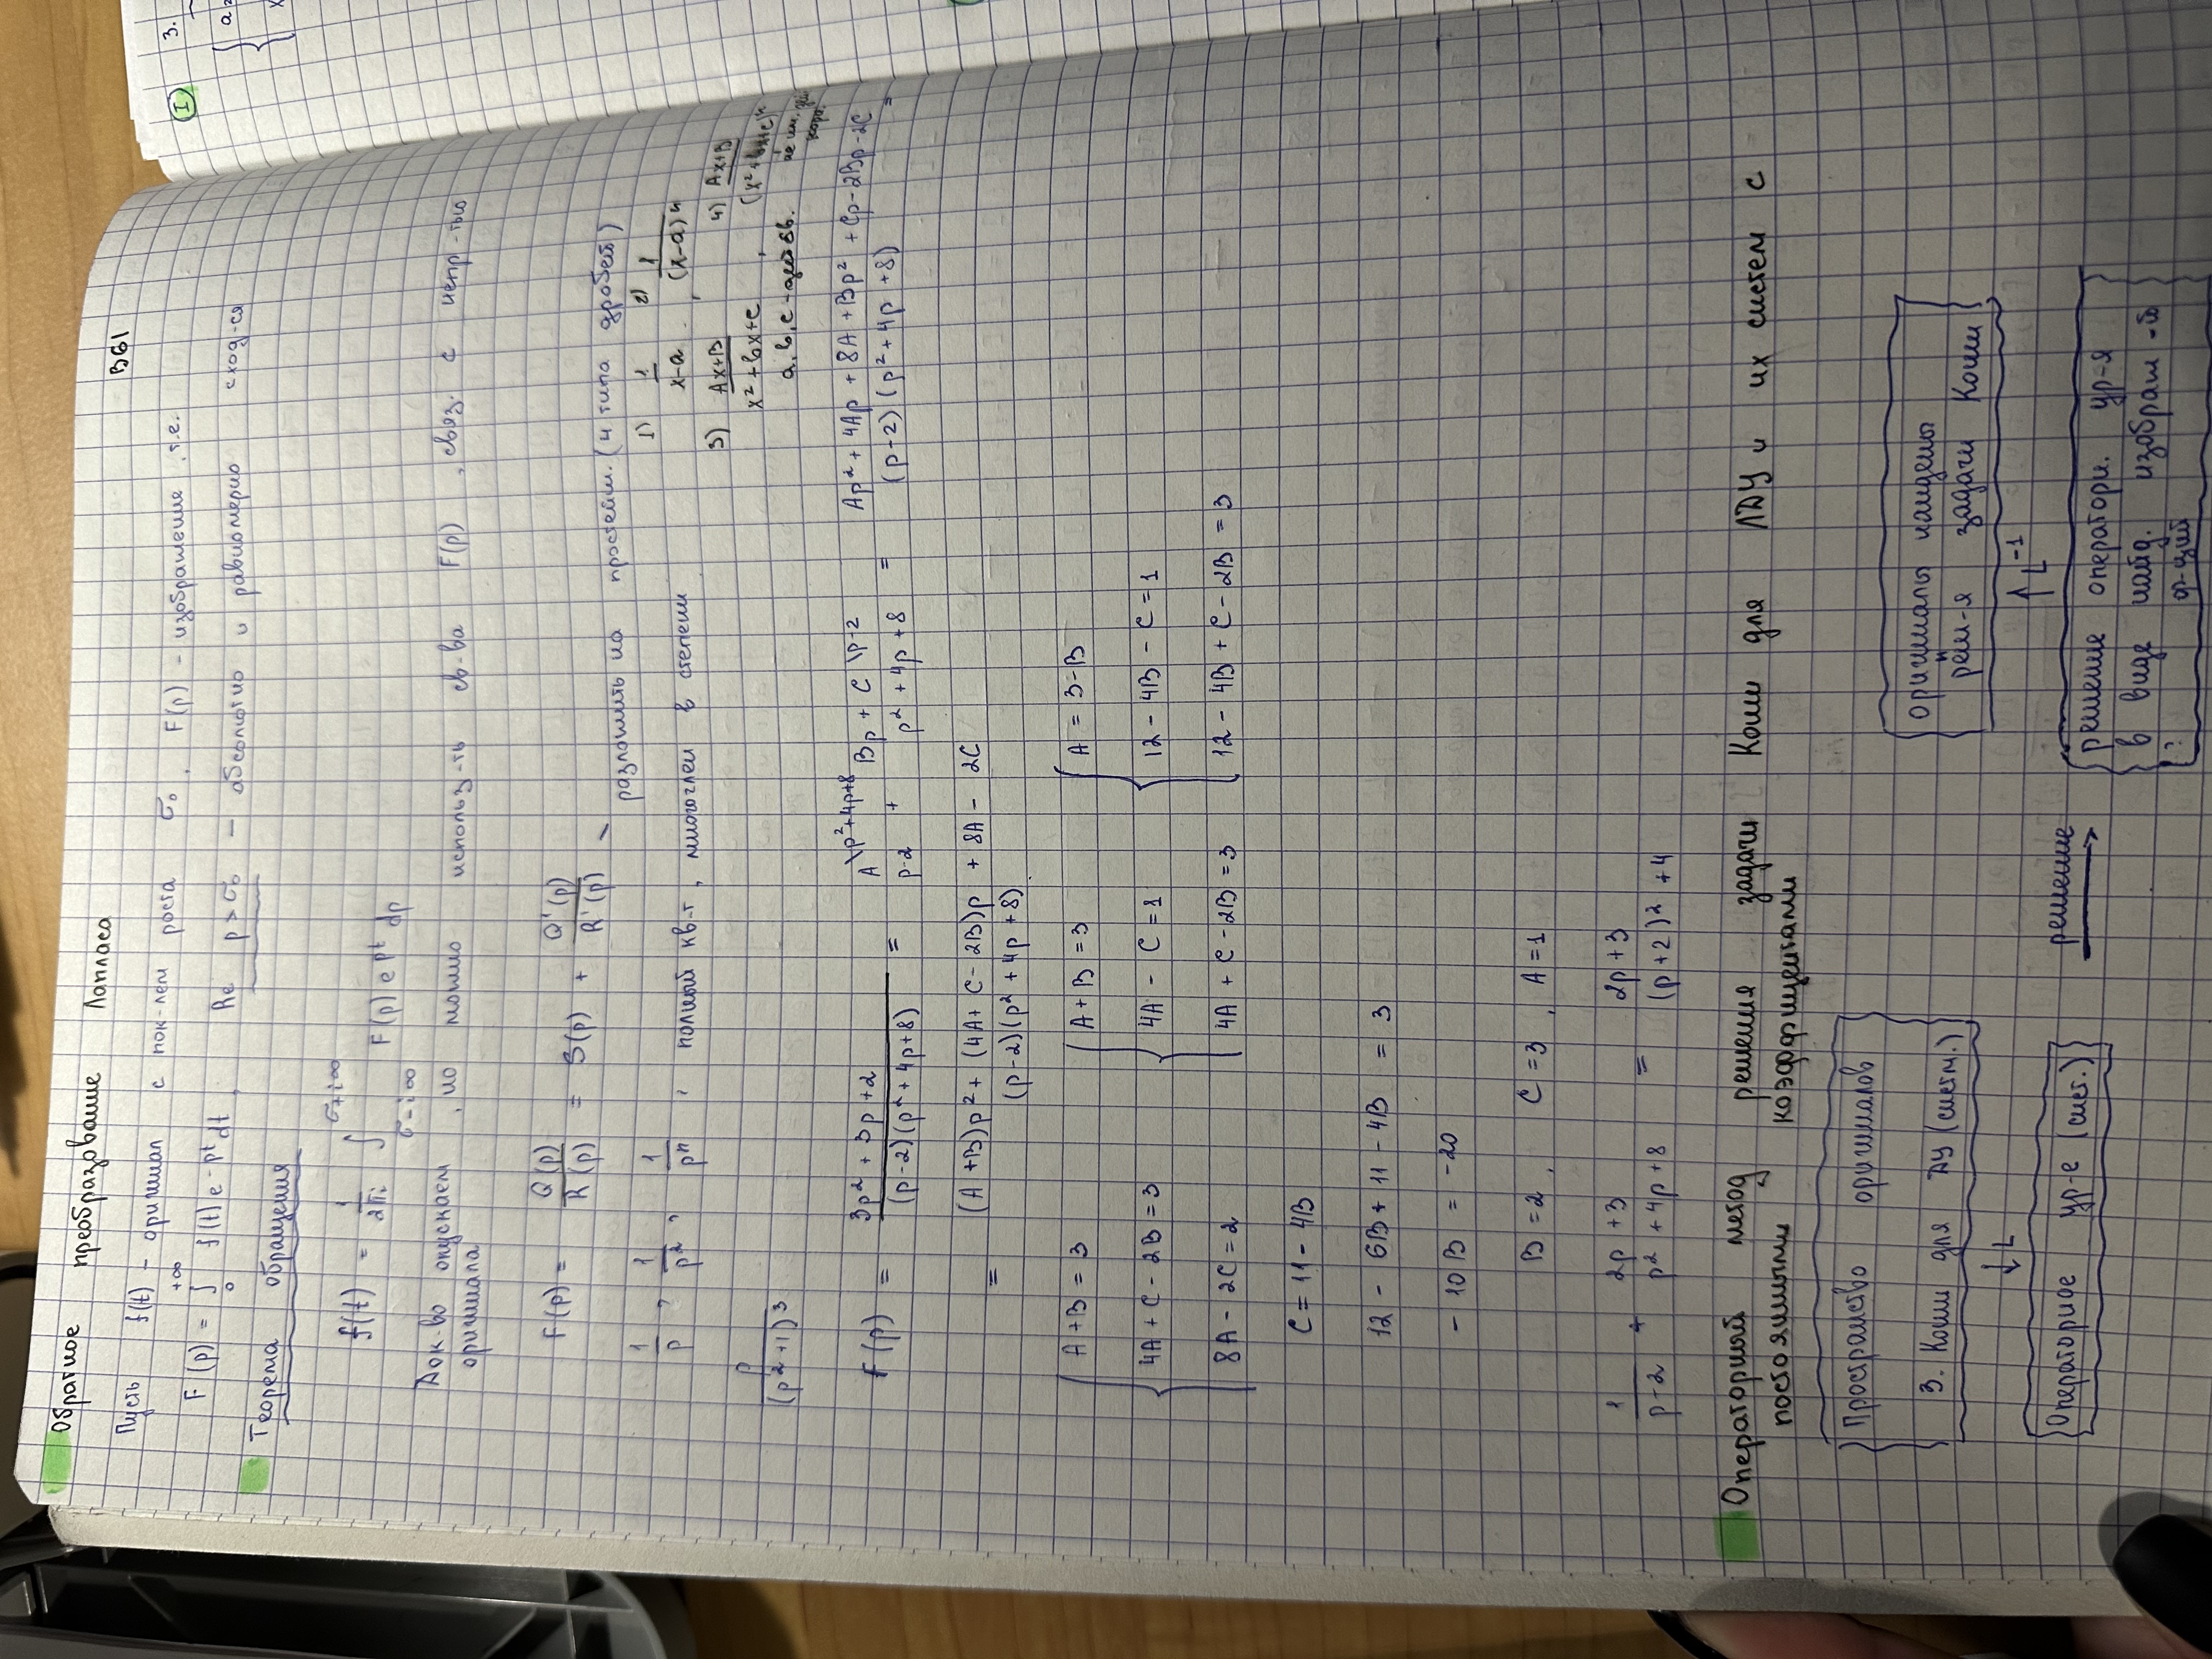 Обратное преобразование Лапласа
B61
Пусть f(t) – оригинал с пок-лем роста σ₀, F(p) – изображение, т.е.
F(p) = ∫₀^{+∞} f(t) e^{-pt} dt, Re p > σ₀ – абсолютно и равномерно сход-ся
Теорема обращения
f(t) = 1/(2πi) ∫_{σ-i∞}^{σ+i∞} F(p) e^{pt} dp
Док-во опускаем, но можно использ-ть св-ва F(p), связ. с непр-тью
оригинала
F(p) = Q(p)/R(p) = S(p) + Q'(p)/R'(p) – разложить на простейш. (4 типа дробей)
1/p, 1/p², 1/pⁿ, полный кв-т, многочлен в степени
1) 1/(x-a), 2) 1/(x-a)ⁿ
3) (Ax+B)/(x²+bx+c), 4) (Ax+B)/(x²+bx+c)ⁿ
a, b, c – действ.
p/(p²+1)³
F(p) = (3p² + 3p + 2)/((p-2)(p²+4p+8)) = A\p²+4p+8/(p-2) + (Bp + C)\p-2/(p²+4p+8) = (Ap² + 4Ap + 8A + Bp² + Cp - 2Bp - 2C)/((p-2)(p²+4p+8)) =
= ((A+B)p² + (4A + C - 2B)p + 8A - 2C)/((p-2)(p²+4p+8))
A+B = 3 A+B = 3 A = 3-B
4A + C - 2B = 3 4A - C = 1 12 - 4B - C = 1
8A - 2C = 2 4A + C - 2B = 3 12 - 4B + C - 2B = 3
C = 11 - 4B
12 - 6B + 11 - 4B = 3
- 10B = -20
B = 2, C = 3, A = 1
1/(p-2) + (2p+3)/(p²+4p+8) = (2p+3)/((p+2)²+4)
Операторный метод решения задачи Коши для ЛДУ и их систем с
постоянными коэффициентами
Пространство оригиналов
З. Коши для ДУ (систм.)
↓ L
Операторное ур-е (сист.)
решение
оригиналы найдены
реш-я задачи Коши
↑ L⁻¹
решение операторн. ур-я
в виде найд. изображ-й
ф-ций
I
3.